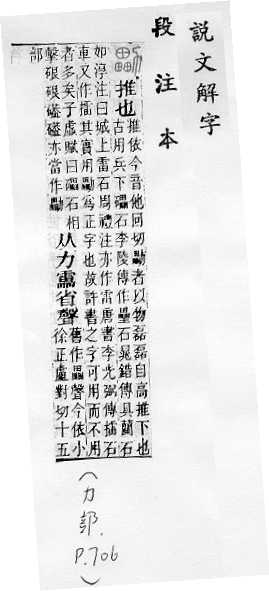 說文解字
段注本
推也
推依今音他回切𠣋者以物磊磊自高推下也
古用兵下礧石李陵傳作壘石晁錯傳具藺石
如淳注曰城上雷石周禮注亦作雷唐書李光弼傳擂石
車又作擂其實用𠣋爲正字也故許書之字可用而不用
者多矣子虛賦曰礧石相
擊硠硠磕磕亦當作𠣋
从力靁省聲
舊作畾聲今依小
徐正盧對切十五
部
(力部.
P.706)